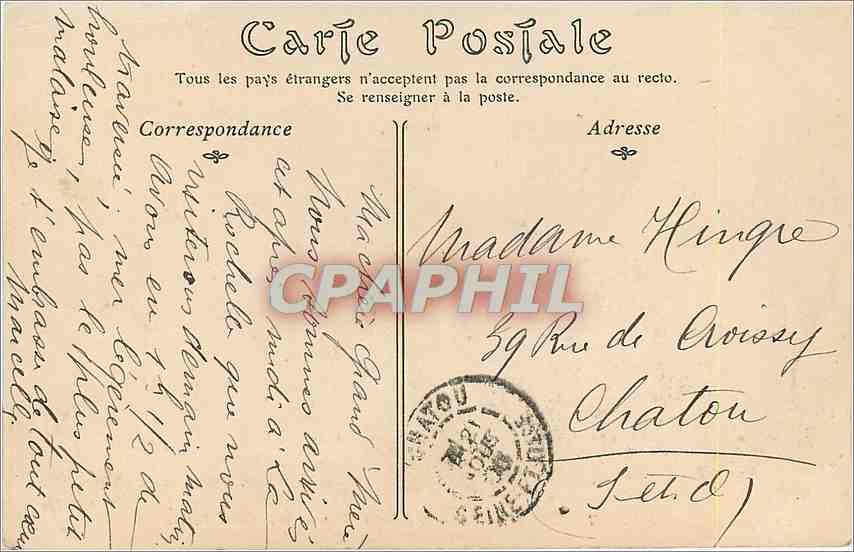 Carte Postale
Tous les pays étrangers n'acceptent pas la correspondance au recto.
Se renseigner à la poste.
Correspondance
Adresse
Ma chère Grand' Mère
Nous sommes arrivés
cet après midi à La
Rochelle que nous
visiterons demain matin
Avons eu 1h 1/2 de
traversée, mer légèrement
houleuse, pas le plus petit
malaise je t'embrasse de tout cœur
Marcelle
Madame Hingre
59 Rue de Croissy
Chatou
(S et O)
CHATOU
21
AOUT
SEINE ET OISE
CPAPHIL